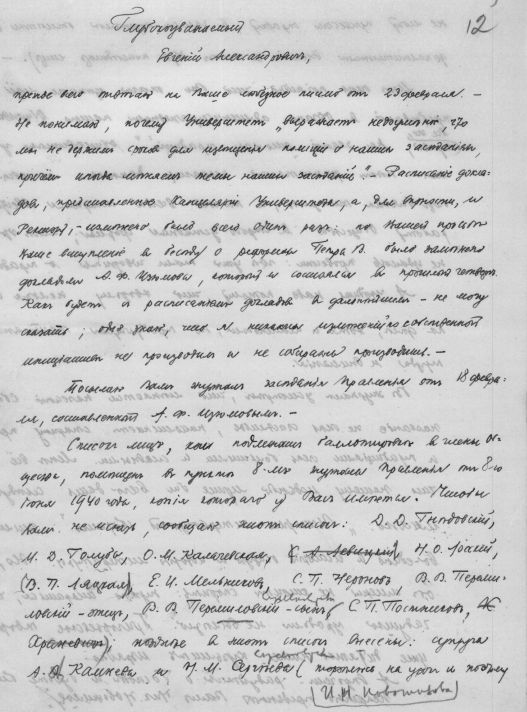 12
Глубокоуважаемый
Евгений Александрович,
прежде всего отвечаю на Ваше любезное письмо от 23 февраля. –
Не понимаю, почему Университет „выражает недоумение, что
мы не держим слова для помещения о наших заседаниях,
причем иногда меняем темы наших заседаний“. – Расписание докла-
дов, представленное Канцелярии Университета, а, для верности, и
Ректору, – изменено было всего один раз: по Вашей просьбе
Ваше выступление в беседу о реформах Петра В. было заменено
докладом А. Ф. Изюмова, который и состоялся в прошлый четверг.
Как будет с расписанием докладов в дальнейшем – не могу
сказать; одно знаю, что я никаких изменений по собственной
инициативе не производил и не собираюсь производить. –
Посылаю Вам журнал заседания Правления от 18 февра-
ля, составленный А. Ф. Изюмовым. –
Список лиц, кои подлежат баллотировке в члены об-
щества, помещен в пункте 8-м журнала Правления от 8-го
июня 1940 года, копия которого у Вас имеется. Чтобы
Вам не искать, сообщаю этот список: Д. Д. Гнедовский,
М. Д. Голубы, О. М. Калачевская, (С. А. Левицкий), Н. О. Лоский,
(В. П. Левахам), Е. И. Мельников, С. П. Неронов, В. В. Переми-
ловский – отец, В. В. Перемиловский – сын, С. П. Постников,
позднее в этот список внесены: супруга
А. А. Камнева и Н. М. Сергеева
(И. Н. Новожилова)